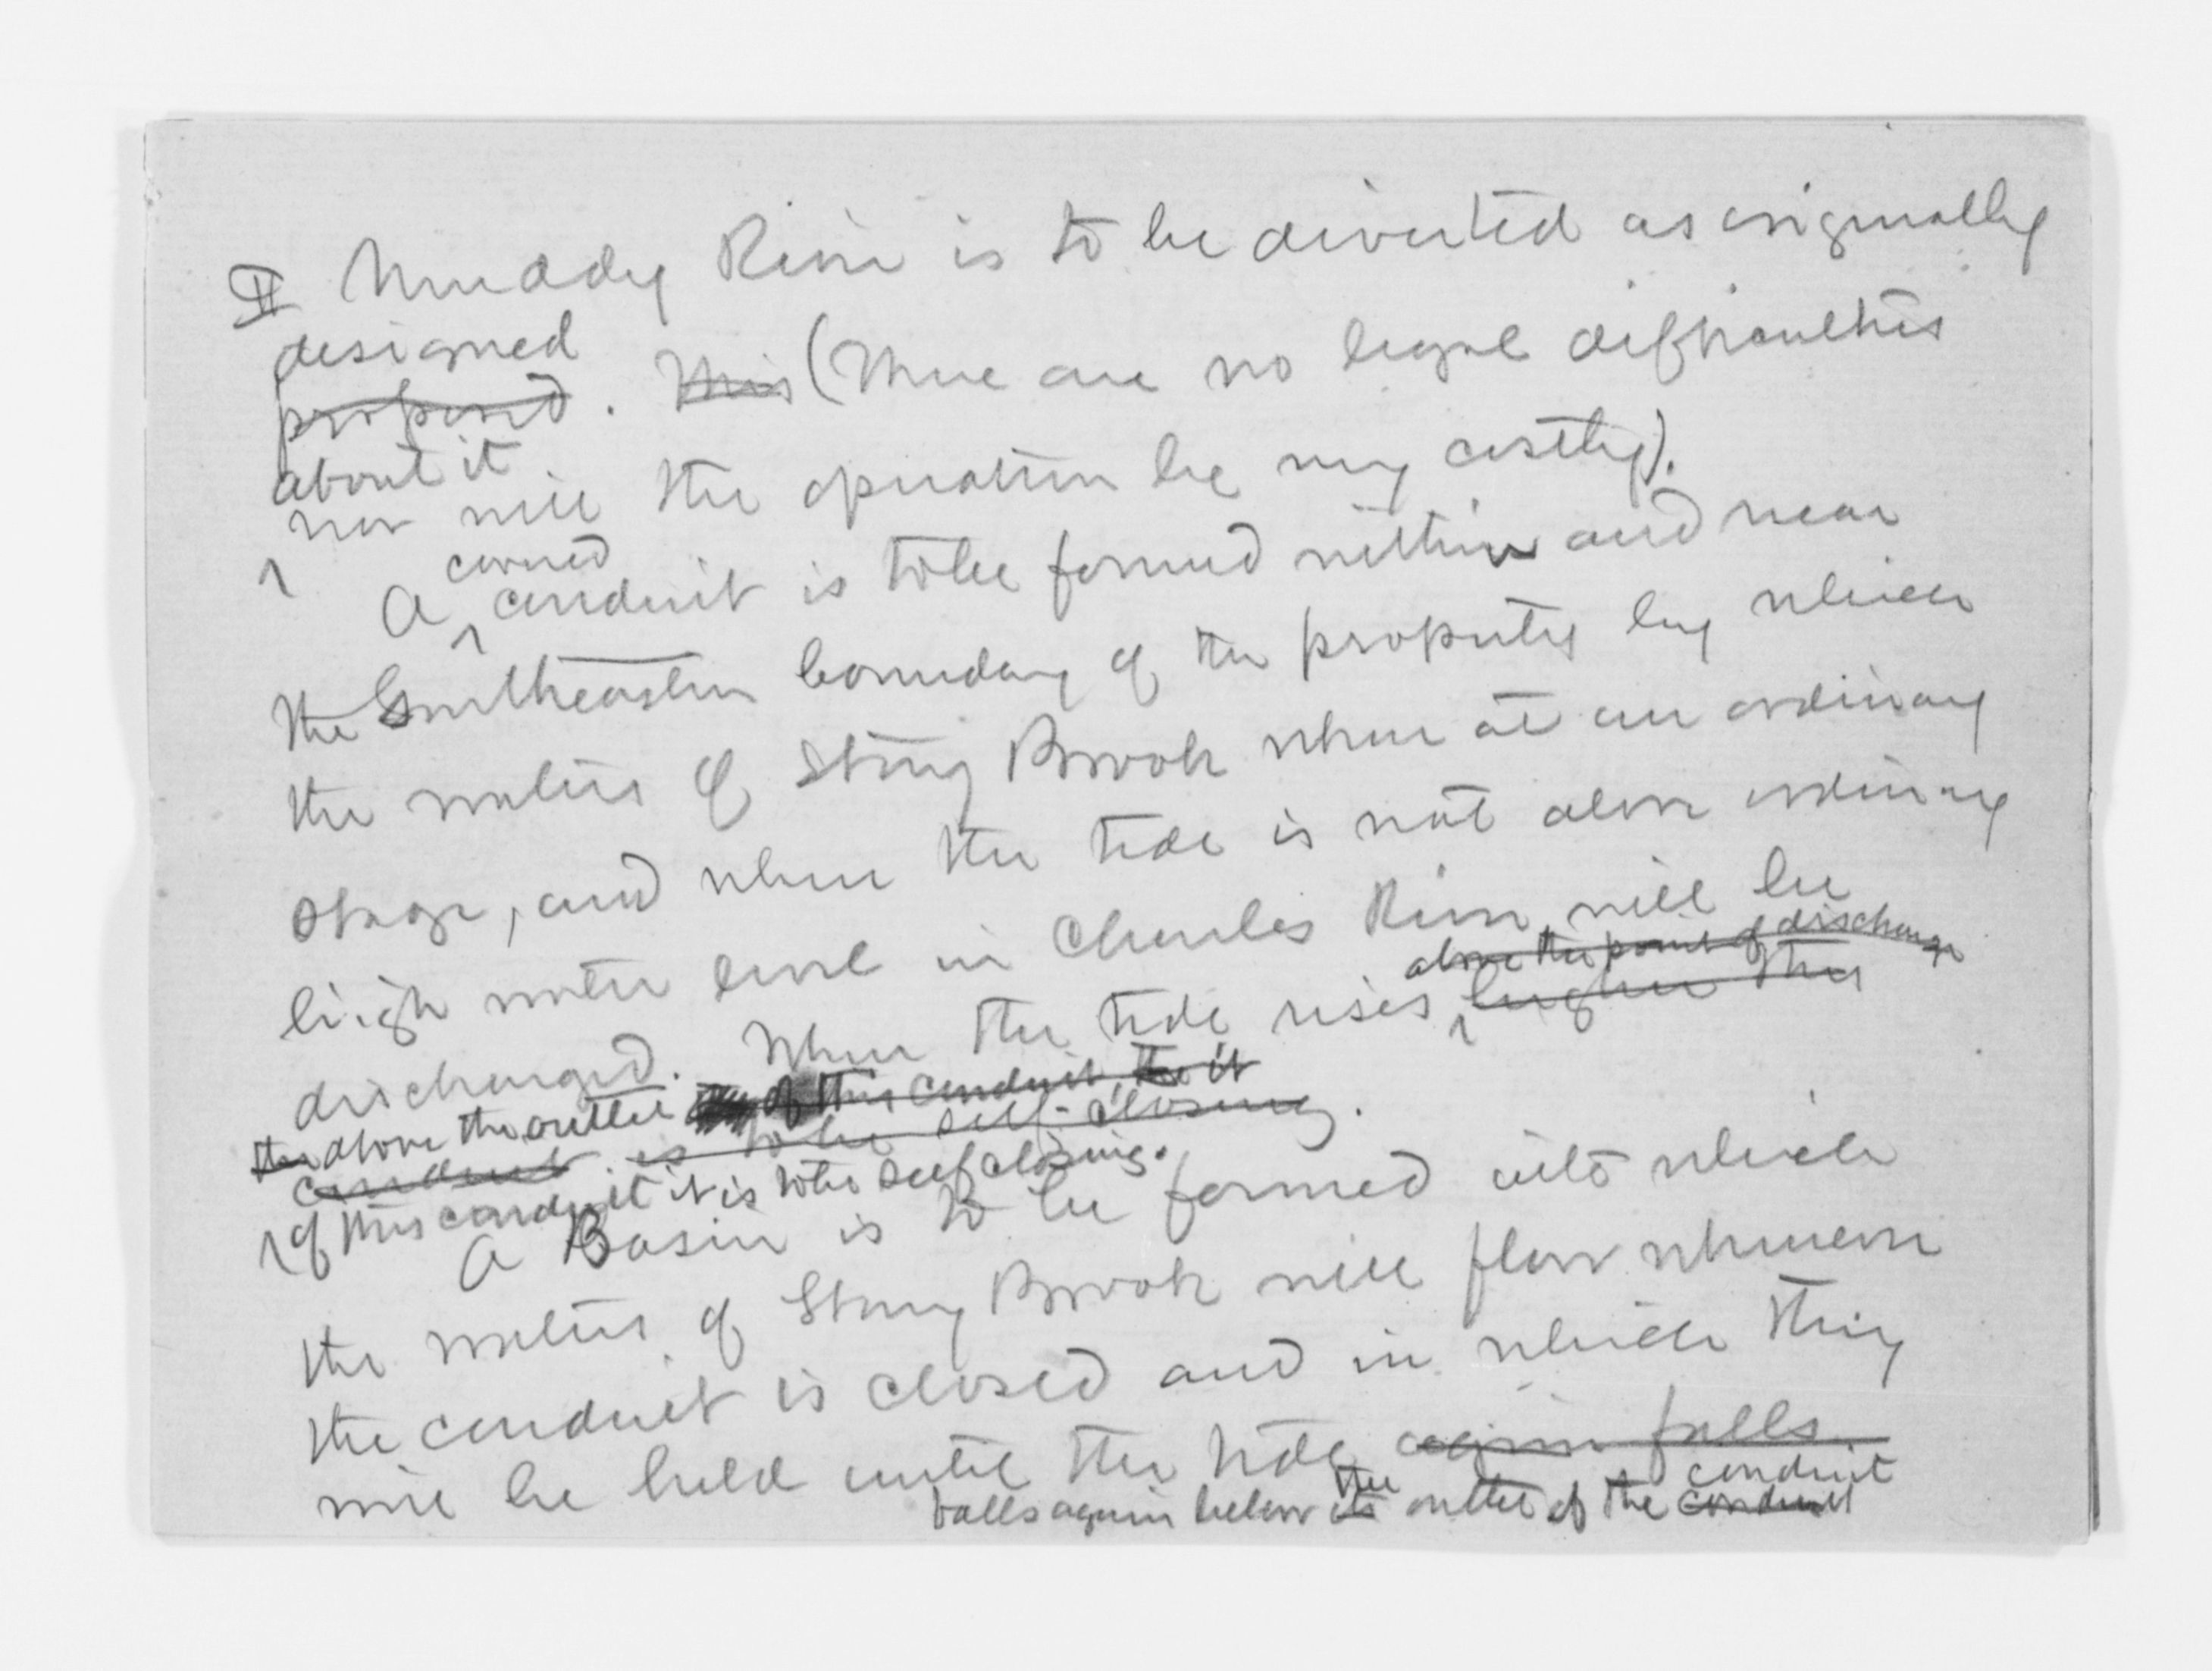 II Muddy River is to be diverted as originally
designed
proposed. This (There are no legal difficulties
about it
nor will the operation be very costly).
covered
A conduit is to be formed within and near
the Southeastern boundary of the property by which
the waters of Stony Brook when at an ordinary
stage, and when the tide is not above ordinary
high water level in Charles River will be
above the point of discharge
discharged. When the tide rises higher this
the above the outlet of this conduit, the it
conduit is to be self-closing.
of this conduit it is to be self closing.
A Basin is to be formed into which
the waters of Stony Brook will flow whenever
the conduit is closed and in which they
will be held until the tide again falls
falls again below its the outlet of the conduit conduit